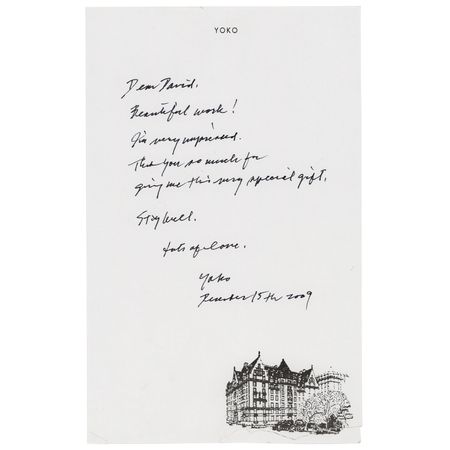 YOKO
Dear David,
Beautiful work!
I'm very impressed.
Thank you so much for
giving me this very special gift.
Stay well.
Lots of love.
Yoko
December 15th 2009